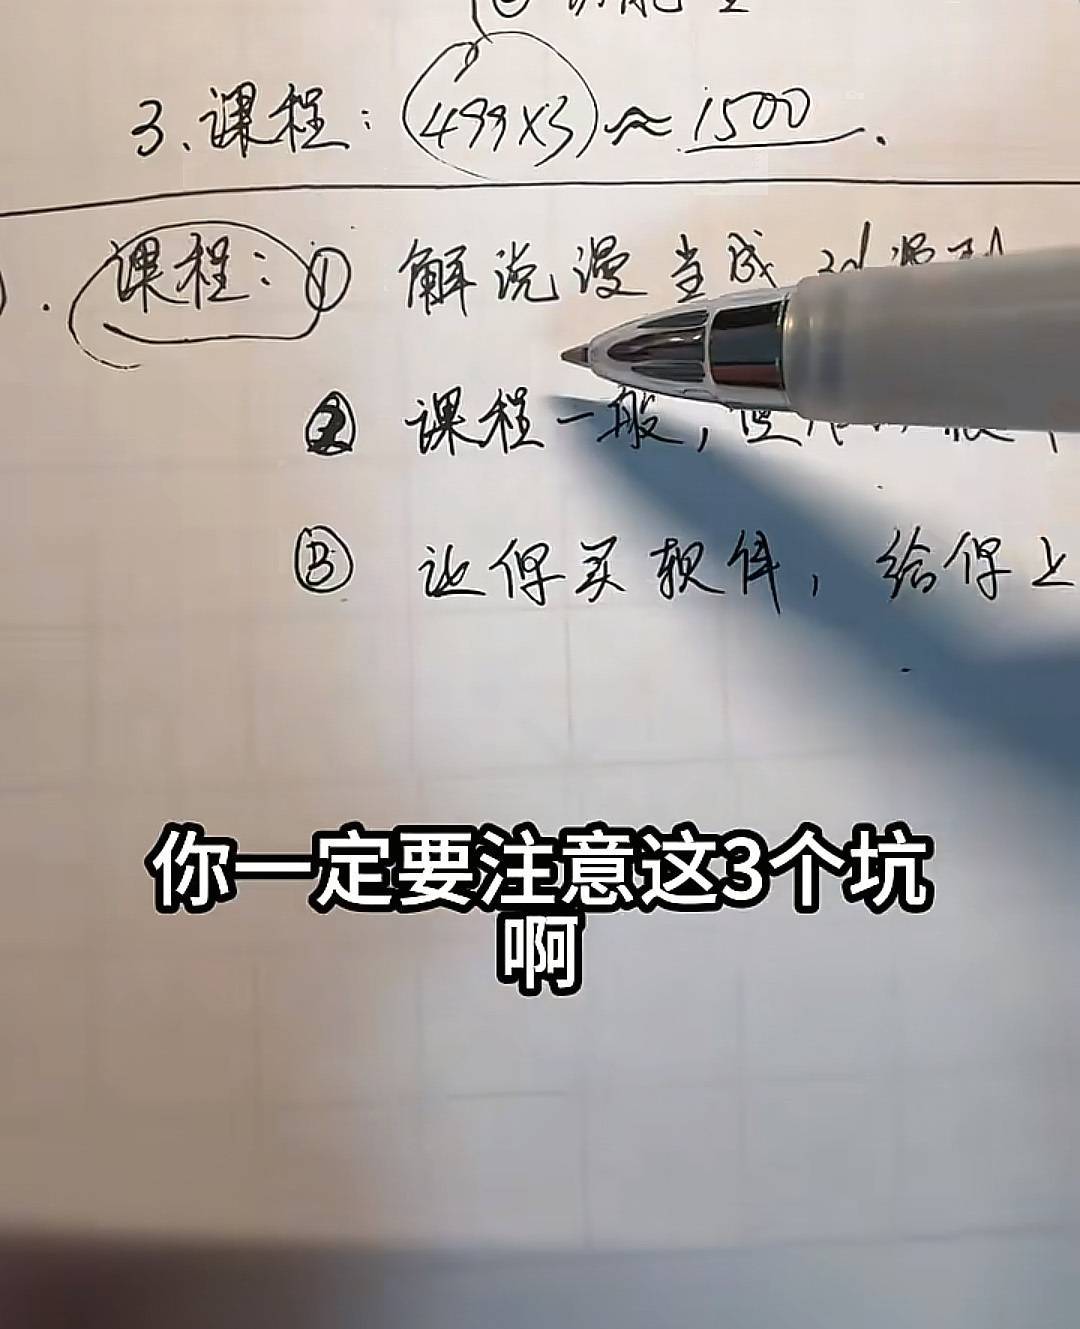 3.课程:(499×3)≈1500.
课程:① 解说漫当成
② 课程一般,
③ 让你买软件,给你上
你一定要注意这3个坑
啊